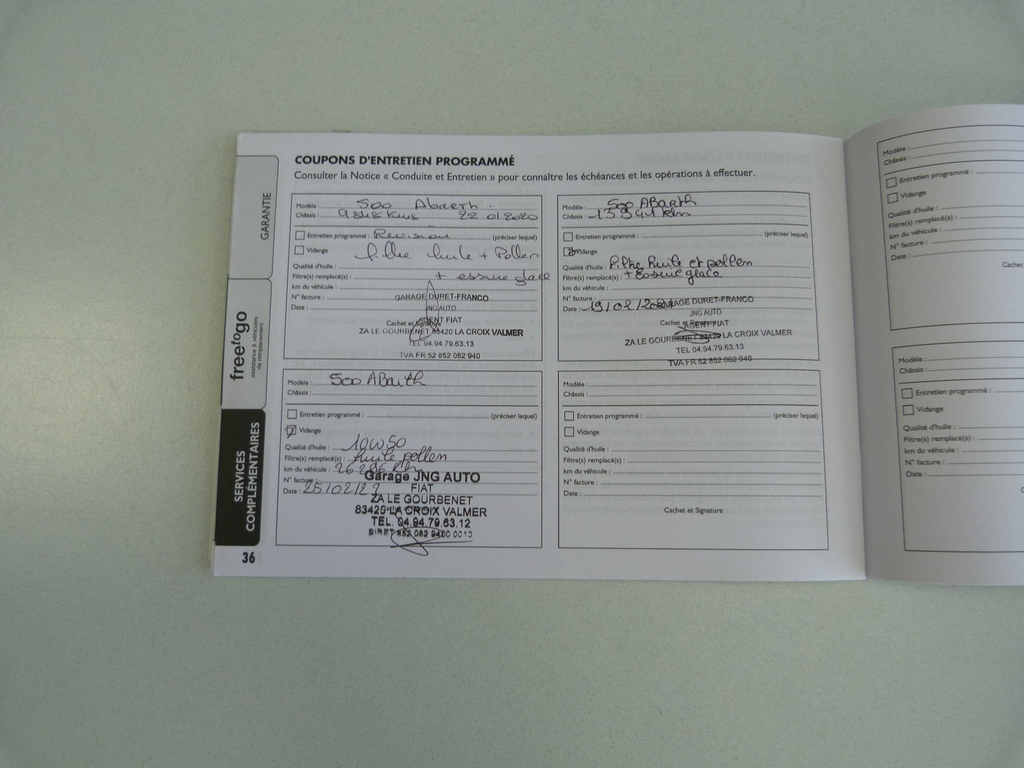 COUPONS D'ENTRETIEN PROGRAMMÉ
Consulter la Notice « Conduite et Entretien » pour connaître les échéances et les opérations à effectuer.
GARANTIE
freetogo
assistance & véhicules
de remplacement
SERVICES
COMPLÉMENTAIRES
36
Modèle : 500 Abarth
Châssis : 22 01 2020
Entretien programmé : Revision (préciser lequel)
Vidange filtre huile + Pollen
Qualité d'huile :
Filtre(s) remplacé(s) : + essuie glace
km du véhicule :
N° facture :
Date :
Cachet et Signature
GARAGE DURET-FRANCO
JNG AUTO
AGENT FIAT
ZA LE GOURBENET 83420 LA CROIX VALMER
TEL 04.94.79.63.13
TVA FR 52 852 082 940
Modèle : 500 ABarth
Châssis :
Entretien programmé : (préciser lequel)
Vidange
Qualité d'huile : Filtre huile et pollen
Filtre(s) remplacé(s) : + Essuie glace
km du véhicule :
N° facture :
Date : 19/02/
Cachet et Signature
GARAGE DURET-FRANCO
JNG AUTO
AGENT FIAT
ZA LE GOURBENET 83420 LA CROIX VALMER
TEL 04.94.79.63.13
TVA FR 52 852 082 940
Modèle : 500 ABarth
Châssis :
Entretien programmé : (préciser lequel)
Vidange
Qualité d'huile : 10W50
Filtre(s) remplacé(s) : huile pollen
km du véhicule :
N° facture :
Date : 25/02/22
Garage JNG AUTO
FIAT
ZA LE GOURBENET
83420 LA CROIX VALMER
TEL. 04.94.79.63.12
SIRET 852 082 9400 0010
Modèle :
Châssis :
Entretien programmé : (préciser lequel)
Vidange
Qualité d'huile :
Filtre(s) remplacé(s) :
km du véhicule :
N° facture :
Date :
Cachet et Signature
Modèle :
Châssis :
Entretien programmé :
Vidange
Qualité d'huile :
Filtre(s) remplacé(s) :
km du véhicule :
N° facture :
Date :
Cachet
Modèle :
Châssis :
Entretien programmé :
Vidange
Qualité d'huile :
Filtre(s) remplacé(s) :
km du véhicule :
N° facture :
Date :